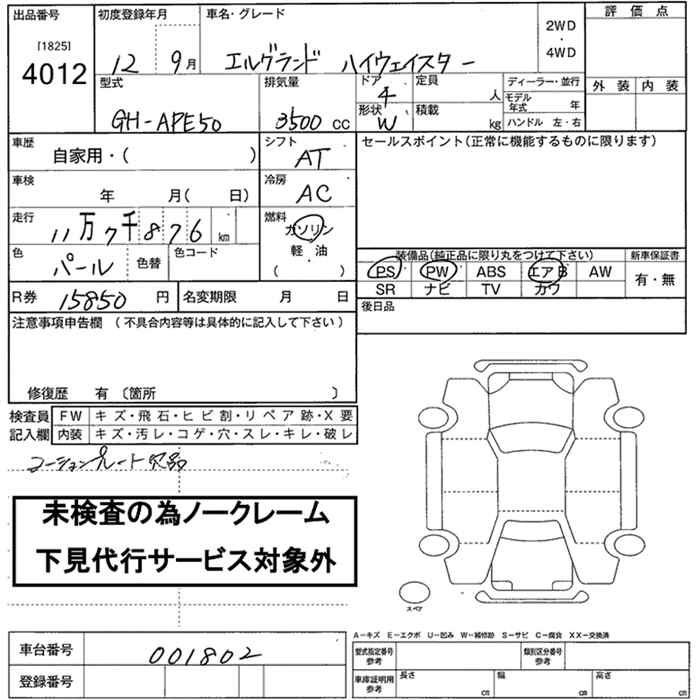 出品番号 初度登録年月 車名・グレード 評価点
[1825] 4012 12 9月 エルグランド ハイウェイスター 2WD・4WD
外装 内装
型式 排気量 ドア 定員 ディーラー・並行
GH-APE50 3500 CC 4 人 モデル年式 年
形状 積載 ハンドル 左・右
W kg
車歴 シフト セールスポイント(正常に機能するものに限ります)
自家用・( ) AT
車検 冷房
年 月( 日) AC
走行 燃料
11万7千876 km ガソリン
軽・油
( )
色 色替 色コード
パール
装備品(純正品に限り丸をつけて下さい) 新車保証書
PS PW ABS エアB AW 有・無
SR ナビ TV カワ
R券 15850 円 名変期限 月 日 後日品
注意事項申告欄 (不具合内容等は具体的に記入して下さい)
修復歴 有 〔箇所 〕
検査員記入欄 FW キズ・飛石・ヒビ割・リペア跡・X要
内装 キズ・汚レ・コゲ・穴・スレ・キレ・破レ
コーションプレート欠品
未検査の為ノークレーム
下見代行サービス対象外
スペア
A-キズ E-エクボ U-凹み W-補修跡 S-サビ C-腐食 XX-交換済
車台番号 001802 型式指定番号 参考 類別区分番号 参考
登録番号 車庫証明用 参考 長さ cm 幅 cm 高さ cm